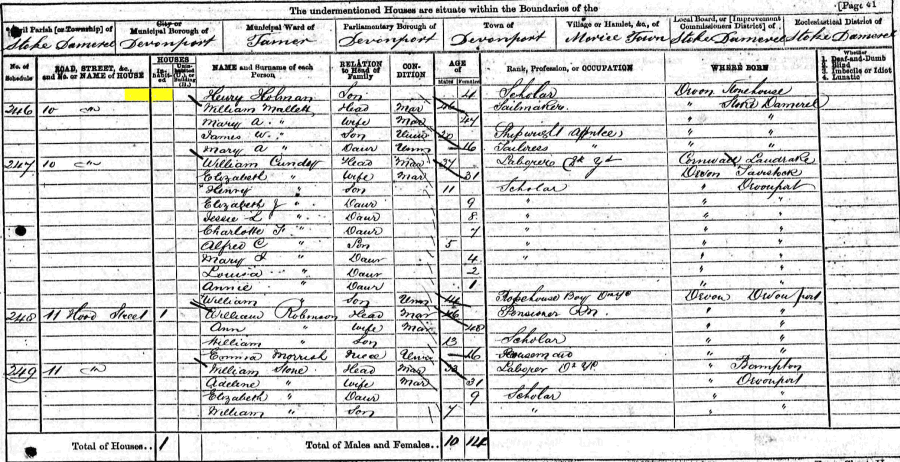 The undermentioned Houses are situate within the Boundaries of the [Page 41
Civil Parish [or Township] of Stoke Damerel
City or Municipal Borough of Devonport
Municipal Ward of Tamar
Parliamentary Borough of Devonport
Town of Devonport
Village or Hamlet, &c., of Morice Town
Local Board, or [Improvement Commissioners District] of Stoke Damerel
Ecclesiastical District of Stoke Damerel
No. of Schedule ROAD, STREET, &c., and No. or NAME of HOUSE HOUSES Inhabited Uninhabited (U.), or Building (B.) NAME and Surname of each Person RELATION to Head of Family CONDITION AGE of Males Females Rank, Profession, or OCCUPATION WHERE BORN Whether Deaf-and-Dumb Blind Imbecile or Idiot Lunatic
Henry Holman Son 4 Scholar Devon Stonehouse
246 10 do William Mallett Head Mar 46 Sailmaker " Stoke Damerel
Mary A. " Wife Mar 47 " "
James W. " Son Unm 20 Shipwright Apptce " "
Mary A " Daur Unm 16 Tailress " " "
247 10 do William Cundy Head Mar 37 Laborer Cornwall Landrake
Elizabeth " Wife Mar 31 Devon Tavistock
Henry " Son 11 Scholar " Devonport
Elizabeth J " Daur 9 " " "
Jessie L " Daur 8 " " "
Charlotte F. " Daur 7 " " "
Alfred C " Son 5 " "
Mary " Daur 4 " "
Louisa " Daur 2 " "
Annie " Daur 1 " "
William " Son Unm 14 Ropehouse Boy Devon Devonport
248 11 Hood Street 1 William Robinson Head Mar 46 Pensioner " "
Ann " Wife Mar 48 " "
William " Son 13 Scholar " "
Emma Morrish Niece Unm 16 " "
249 11 do William Stone Head Mar 33 Laborer " Bampton
Adeline " Wife Mar 31 " Devonport
Elizabeth " Daur 9 Scholar " "
William " Son 7 " " "
Total of Houses.. 1 Total of Males and Females.. 10 14